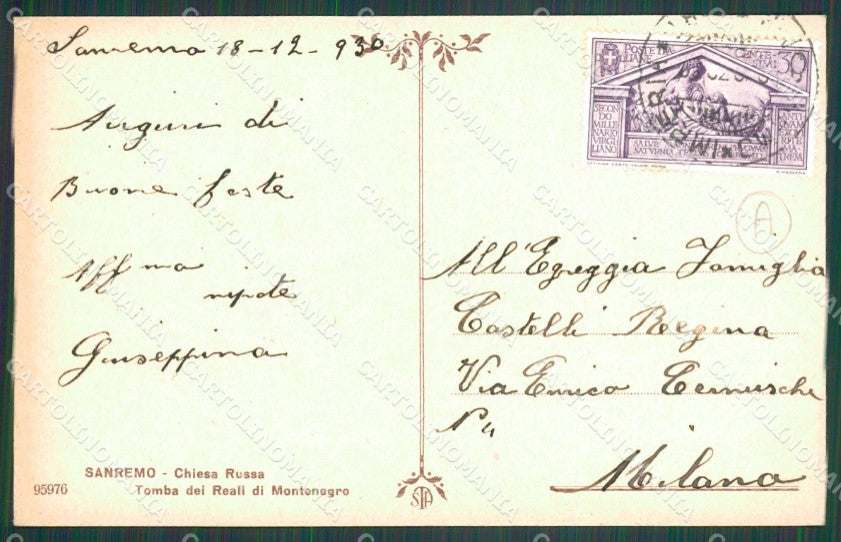 Sanremo 18-12-930
Auguri di
Buone feste
Affma
nipote
Giuseppina
SANREMO - Chiesa Russa
Tomba dei Reali di Montenegro
95976
POSTE ITALIANE
CENTESIMI
50
SECONDO MILLENARIO VIRGILIANO
SALVE
A
All'Egreggia Famiglia
Castelli Regina
Via Enrico Cernuschi
N 4
Milano
STA
CARTOLINOMANIA